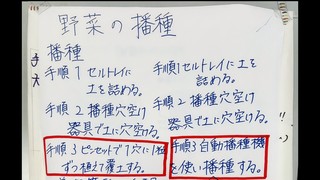 野菜の播種
播種
手順1 セルトレイに
土を詰める。
手順2 播種穴空け
器具で土に穴空ける。
手順3 ピンセットで1穴に1粒
ずつ植えて覆土する。
手順1 セルトレイに土を
詰める。
手順2 播種穴空け
器具で土に穴空ける。
手順3 自動播種機
を使い播種する。